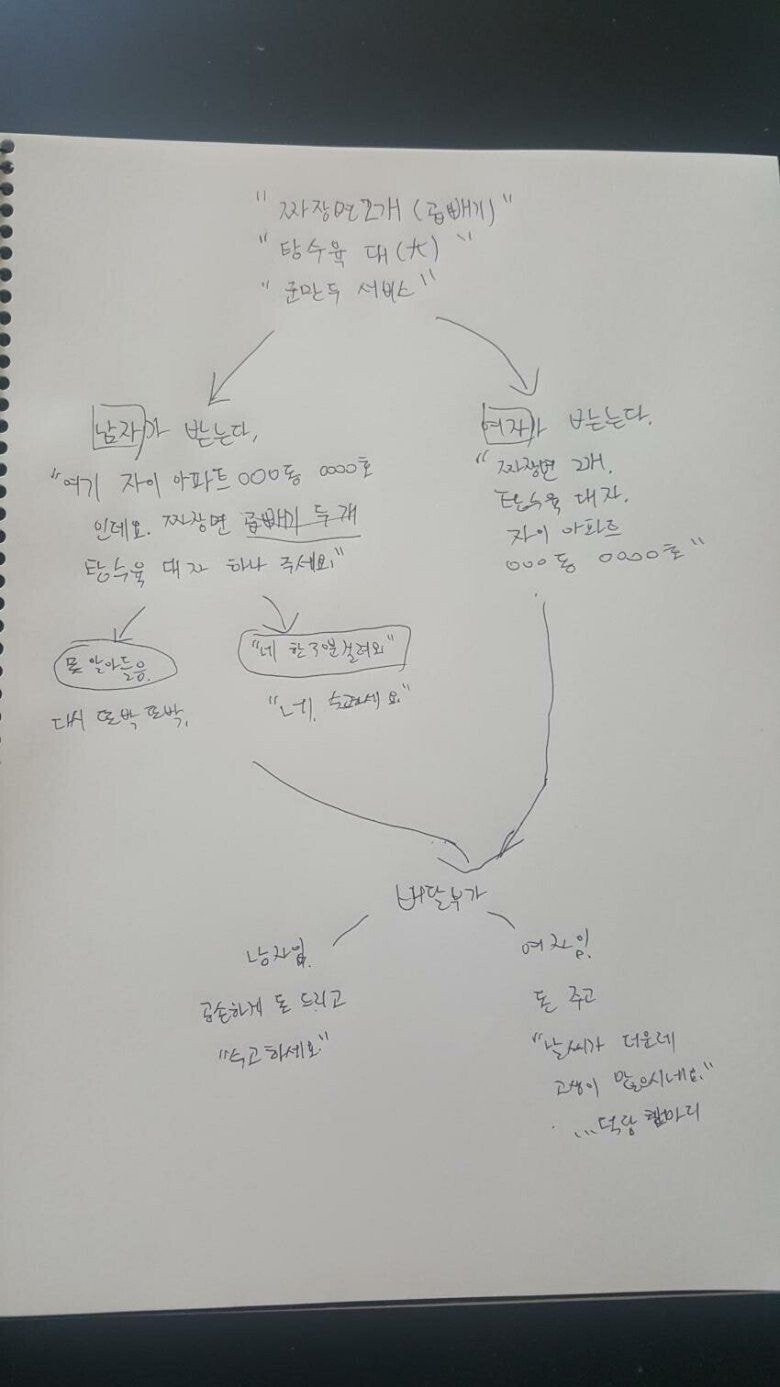 "짜장면 2개 (곱빼기)"
"탕수육 대(大)"
"군만두 서비스"
남자가 받는다.
"여기 자이 아파트 000동 0000호
인데요. 짜장면 곱빼기 두 개
탕수육 대자 하나 주세요."
못 알아들음.
다시 또박또박.
"네 한 30분 걸려요"
"네. 수고하세요."
여자가 받는다.
"짜장면 2개.
탕수육 대자.
자이 아파트
000동 0000호"
배달부가
남자임.
공손하게 돈 드리고
"수고하세요"
여자임.
돈 주고
"날씨가 더운데
고생이 많으시네요."
...덕담 한마디